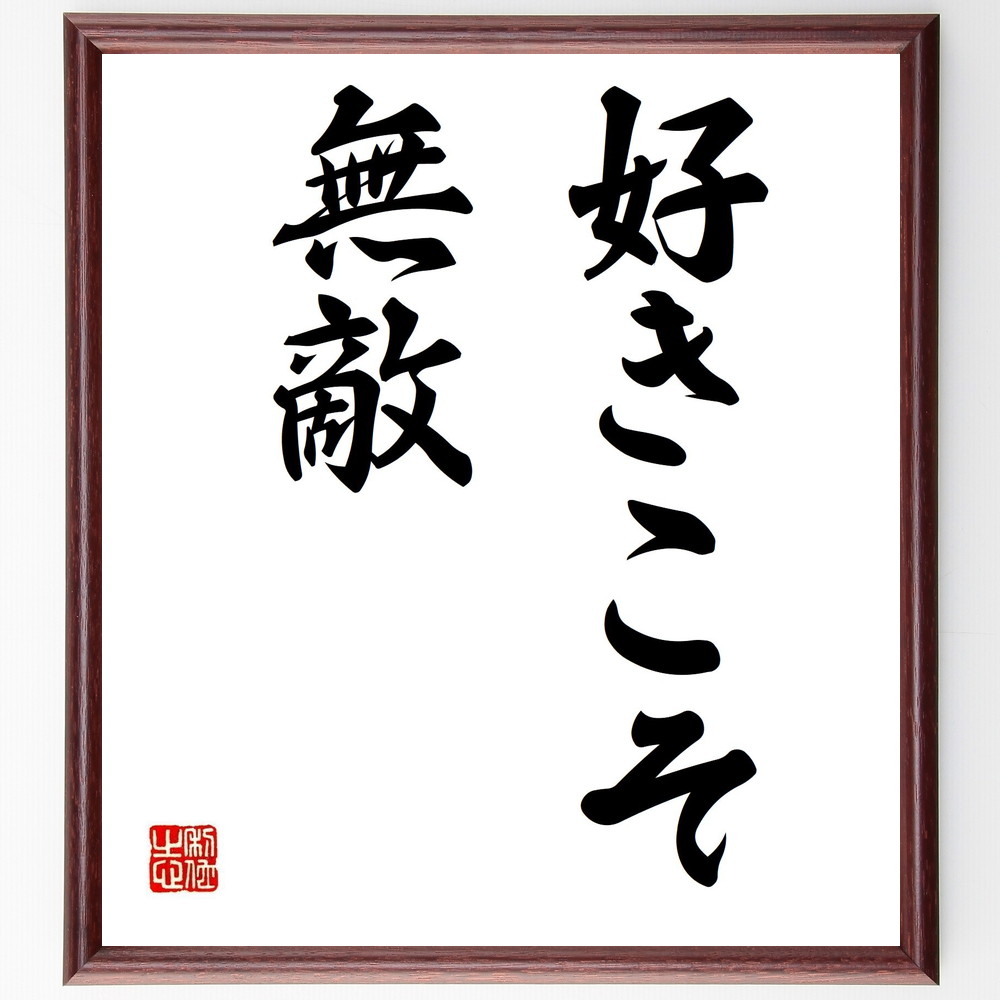 好きこそ
無敵